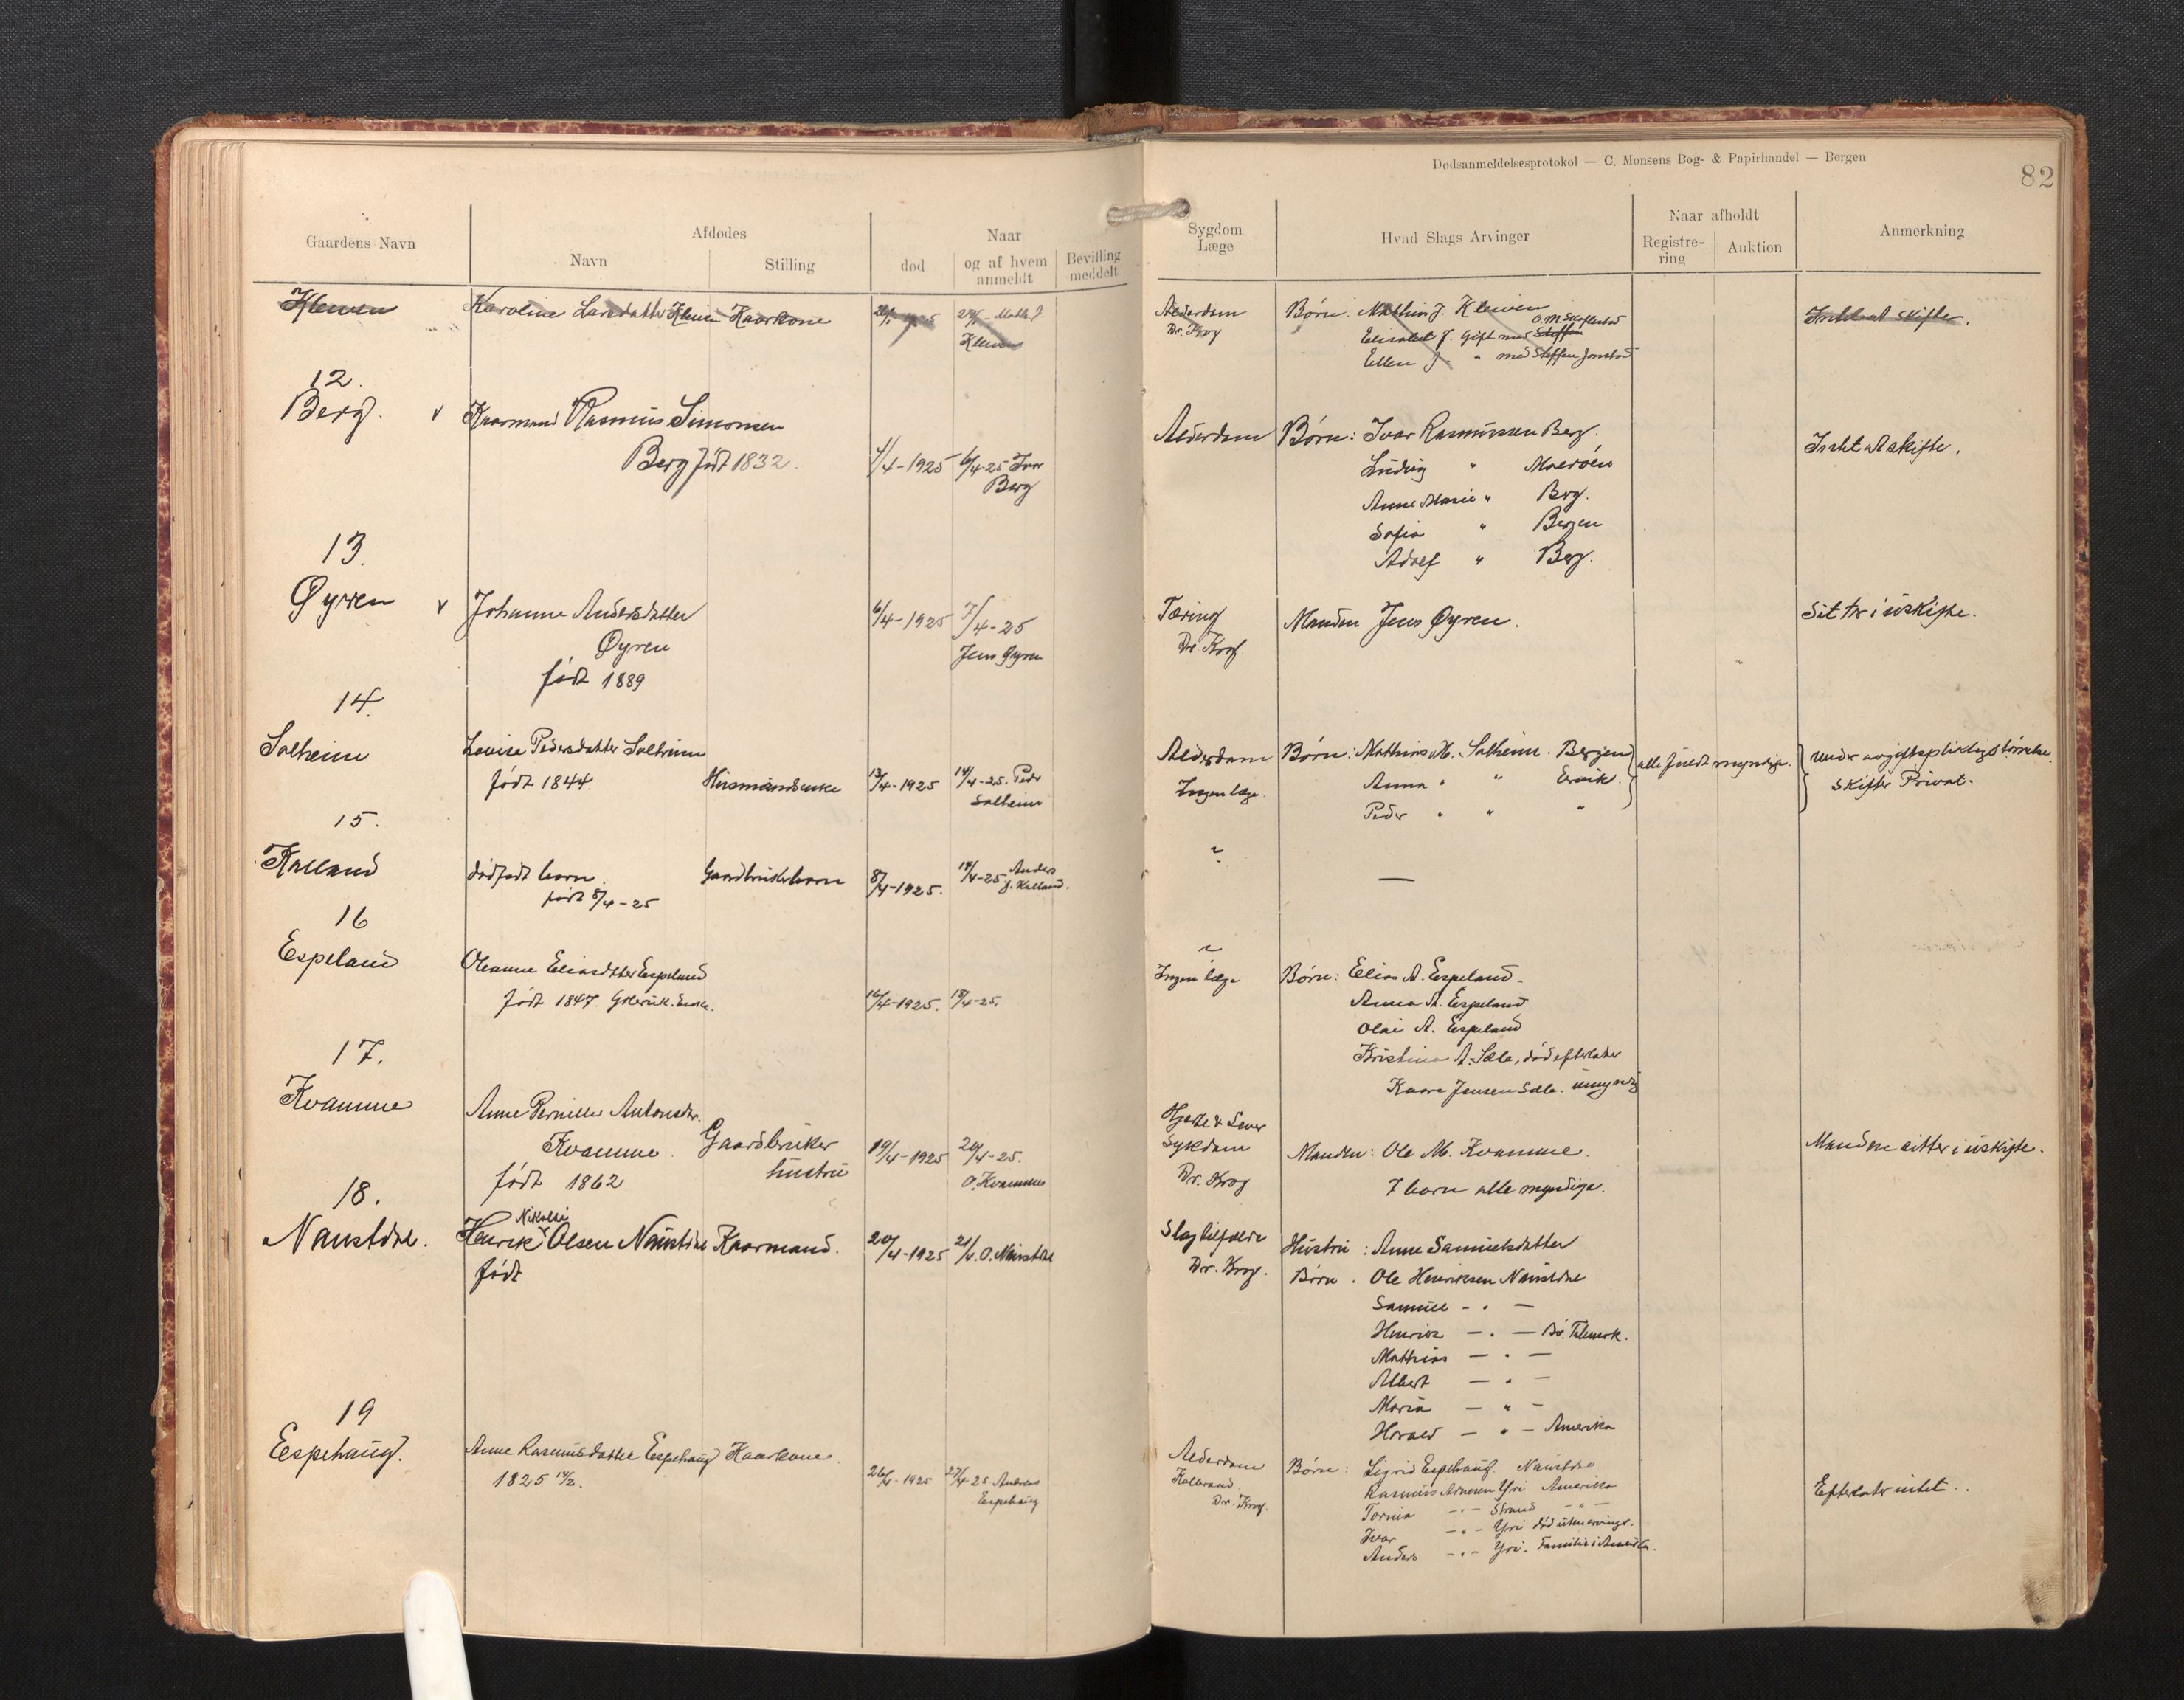 Dødsanmeldelsesprotokol — C. Monsens Bog- & Papirhandel — Bergen
82
Gaardens Navn
Afdødes
Navn
Stilling
Naar
død
og af hvem anmeldt
Bevilling meddelt
Sygdom
Læge
Hvad Slags Arvinger
Naar afholdt
Registre-
ring
Auktion
Anmerkning
Kleiven
Karoline Larsdatter Kleiven Kaarkone
Matths J
Kleiven
Alderdom
Dr. Krog
Børn: Mathias J. Kleiven
O. M. Skaflestad
Elisabet J. Gift med Steffen
Ellen J. " med Steffen Jonstad
Intet at skifte.
12.
Berg. v
Kaarmand Rasmus Simonsen
Berg født 1832.
1/4-1925
6/4-25 Ivar
Berg
Alderdom
Børn: Ivar Rasmussen Berg.
Ludvig " Maurstad
Anne Marie " Berg.
Sofia " Bergen
Adolf " Berg.
Intet at skifte.
13.
Øyren v
Johanne Andersdatter
Øyren
født 1889
6/4-1925
7/4-25
Jens Øyren
Tæring
Dr Krog
Manden Jens Øyren.
Sitter i uskifte.
14.
Solheim
Lovise Pedersdatter Solheim
født 1844.
Husmandsenke
13/4-1925
14/4-25. Peder
Solheim
Alderdom
Ingen læge.
Børn: Mathias M. Solheim. Bergen
Anna " " Ervik.
Peder " " "
alle fuldt myndige.
under avgiftspliktig størrelse.
Skifter Privat.
15.
Kalland
dødfødt barn.
født 8/4-25
Gaardbrukerbarn
8/4-1925.
14/4-25 Anders
J. Kalland.
?
—
16
Espeland
Oleanne Eliasdtter Espeland
født 1847. Gbruk. Enke.
16/4-1925.
18/4-25.
?
Ingen læge
Børn: Elias A. Espeland.
Anna A. Espeland
Olai A. Espeland
Kristina A. Sæle, død efterlater
Kaare Jensen Sæle. umyndig
17.
Kvamme
Anne Pernille Antonsdtr.
Kvamme.
født 1862
Gaardbruker
hustru
19/4-1925
20/4-25.
O. Kvamme
Hjerte & Lever
Sykdom
Dr. Krog
Manden: Ole M. Kvamme.
7 barn alle myndige.
Manden sitter i uskifte.
18.
Naustdal.
Nikolai
Henrik Olsen Naustdal Kaarmand.
født
20/4-1925
21/4. O. Naustdal
Slagtilfælde
Dr. Krog.
Hustru: Anne Samuelsdatter
Børn. Ole Henriksen Naustdal
Samuel - " —
Henrik — " — Bø. Telemark.
Mathias — " —
Albert — " —
Maria — " —
Harald — " — Amerika
19
Espehaug.
Anne Rasmusdatter Espehaug Kaarkone.
1825 14/2.
26/4-1925
27/4-25 Andreas
Espehaug
Alderdom
Koldbrand
Dr. Krog.
Børn: Sigrid Espehaug. Naustdal
Rasmus Arnesen Yri Amerika
Torina - " - Strand - " -
Ivar - " - Yri død uten arvinger.
Anders - " - Yri. Familie i Amerika.
Efterlater intet.